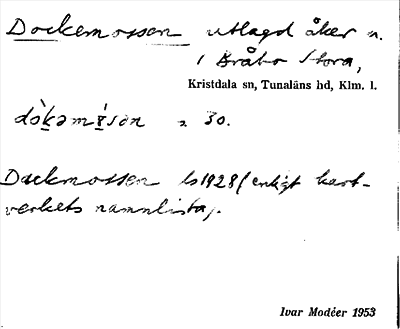 Dockemossen utlagd åker n.
i Bråbo Stora,
Kristdala sn, Tunaläns hd, Klm. l.
30.
Dockmossen ls 1928 (enligt kart-
verkets namnlista).
Ivar Modéer 1953